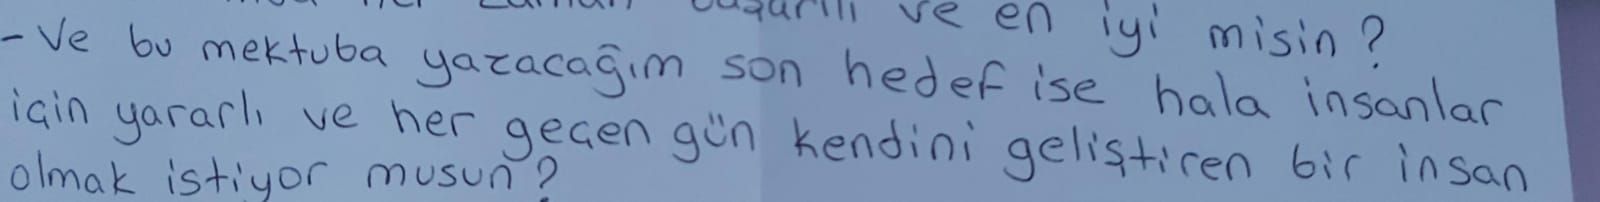 ve en iyi misin?
- Ve bu mektuba yazacağım son hedef ise hala insanlar
için yararlı ve her geçen gün kendini geliştiren bir insan
olmak istiyor musun?